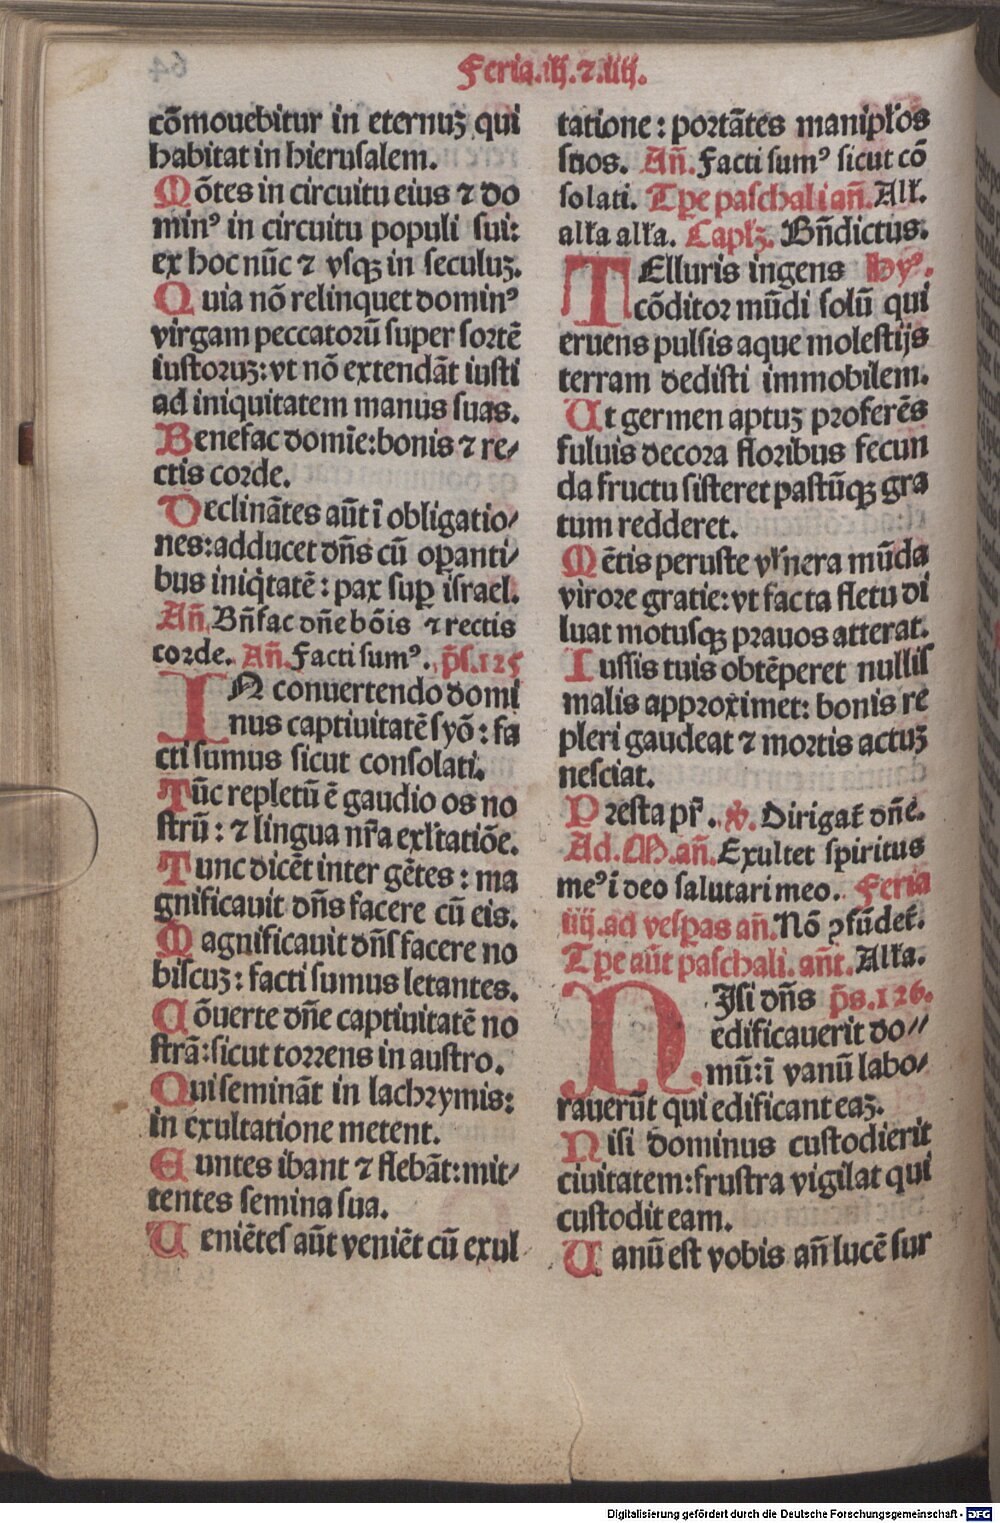 Feria.iij.⁊.iiij.
cōmouebitur in eternuȝ qui
habitat in hierusalem.
Mōtes in circuitu eius ⁊ do
minꝰ in circuitu populi sui:
ex hoc nūc ⁊ vsqꝫ in seculuȝ.
Quia nō relinquet dominꝰ
virgam peccatorū super sortē
iustoruȝ: vt nō extendāt iusti
ad iniquitatem manus suas.
Benefac domīe: bonis ⁊ re/
ctis corde.
Declinātes aūt ī obligatio/
nes: adducet dn̄s cū oꝑanti/
bus iniq̇tatē: pax suꝑ israel.
An̄. Bn̄fac dn̄e bōis ⁊ rectis
corde. An̄. Facti sumꝰ. p̄s.125
IN conuertendo domi
nus captiuitatē syō: fa
cti sumus sicut consolati.
Tūc repletū ē gaudio os no
strū: ⁊ lingua nr̄a exl̓tatiōe.
Tunc dicēt inter gētes: ma
gnificauit dn̄s facere cū eis.
Magnificauit dn̄s facere no
biscuȝ: facti sumus letantes.
Cōuerte dn̄e captiuitatē no
strā: sicut torrens in austro.
Qui semināt in lachrymis:
in exultatione metent.
Euntes ibant ⁊ flebāt: mit/
tentes semina sua.
Ueniētes aūt veniēt cū exul
tatione: portātes manipl̓os
suos. An̄. Facti sumꝰ sicut cō
solati. Tꝑe paschali an̄. All̓.
all̓a all̓a. Capl̓ȝ. Bn̄dictus.
TElluris ingens Hyꝰ.
cōditor mūdi solū qui
eruens pulsis aque molestijs
terram dedisti immobilem.
Ut germen aptuȝ proferēs
fuluis decora floribus fecun
da fructu sisteret pastūqꝫ gra
tum redderet.
Mētis peruste vl̓nera mūda
virore gratie: vt facta fletu di
luat motusqꝫ prauos atterat.
Iussis tuis obtēperet nullis
malis approximet: bonis re
pleri gaudeat ⁊ mortis actuȝ
nesciat.
Presta pr̄. ℣. Dirigat̄ dn̄e.
Ad. M. an̄. Exultet spiritus
meꝰ ī deo salutari meo. Feria
iiij. ad vesꝑas an̄. Nō ꝯfūdet̄.
Tꝑe aūt paschali. ant̄. All̓a.
NIsi dn̄s p̄s.126.
edificauerit do//
mū: ī vanū labo/
rauerūt qui edificant eaȝ.
Nisi dominus custodierit
ciuitatem: frustra vigilat qui
custodit eam.
Uanū est vobis an̄ lucē sur
Digitalisierung gefördert durch die Deutsche Forschungsgemeinschaft - DFG